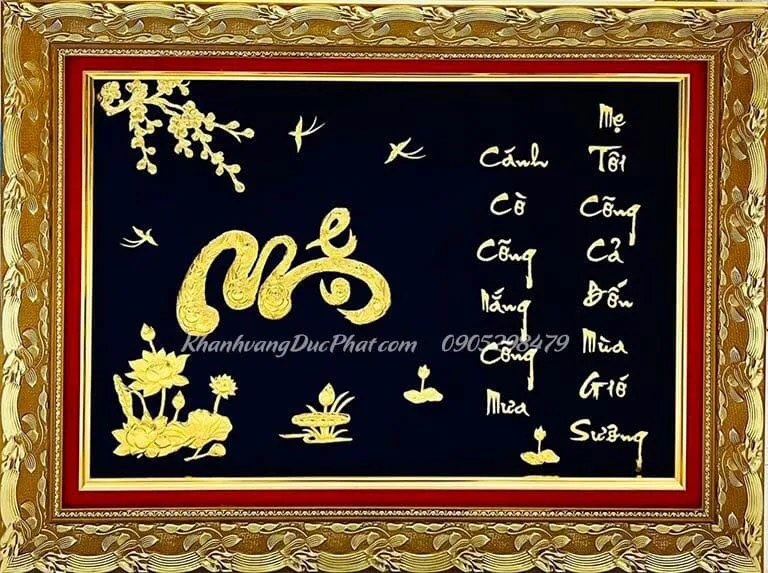 Mẹ
Cánh Cò Cõng Nắng Cõng Mưa
Mẹ Tôi Cõng Cả Bốn Mùa Gió Sương
KhanhvangDucPhat.com 0905298479